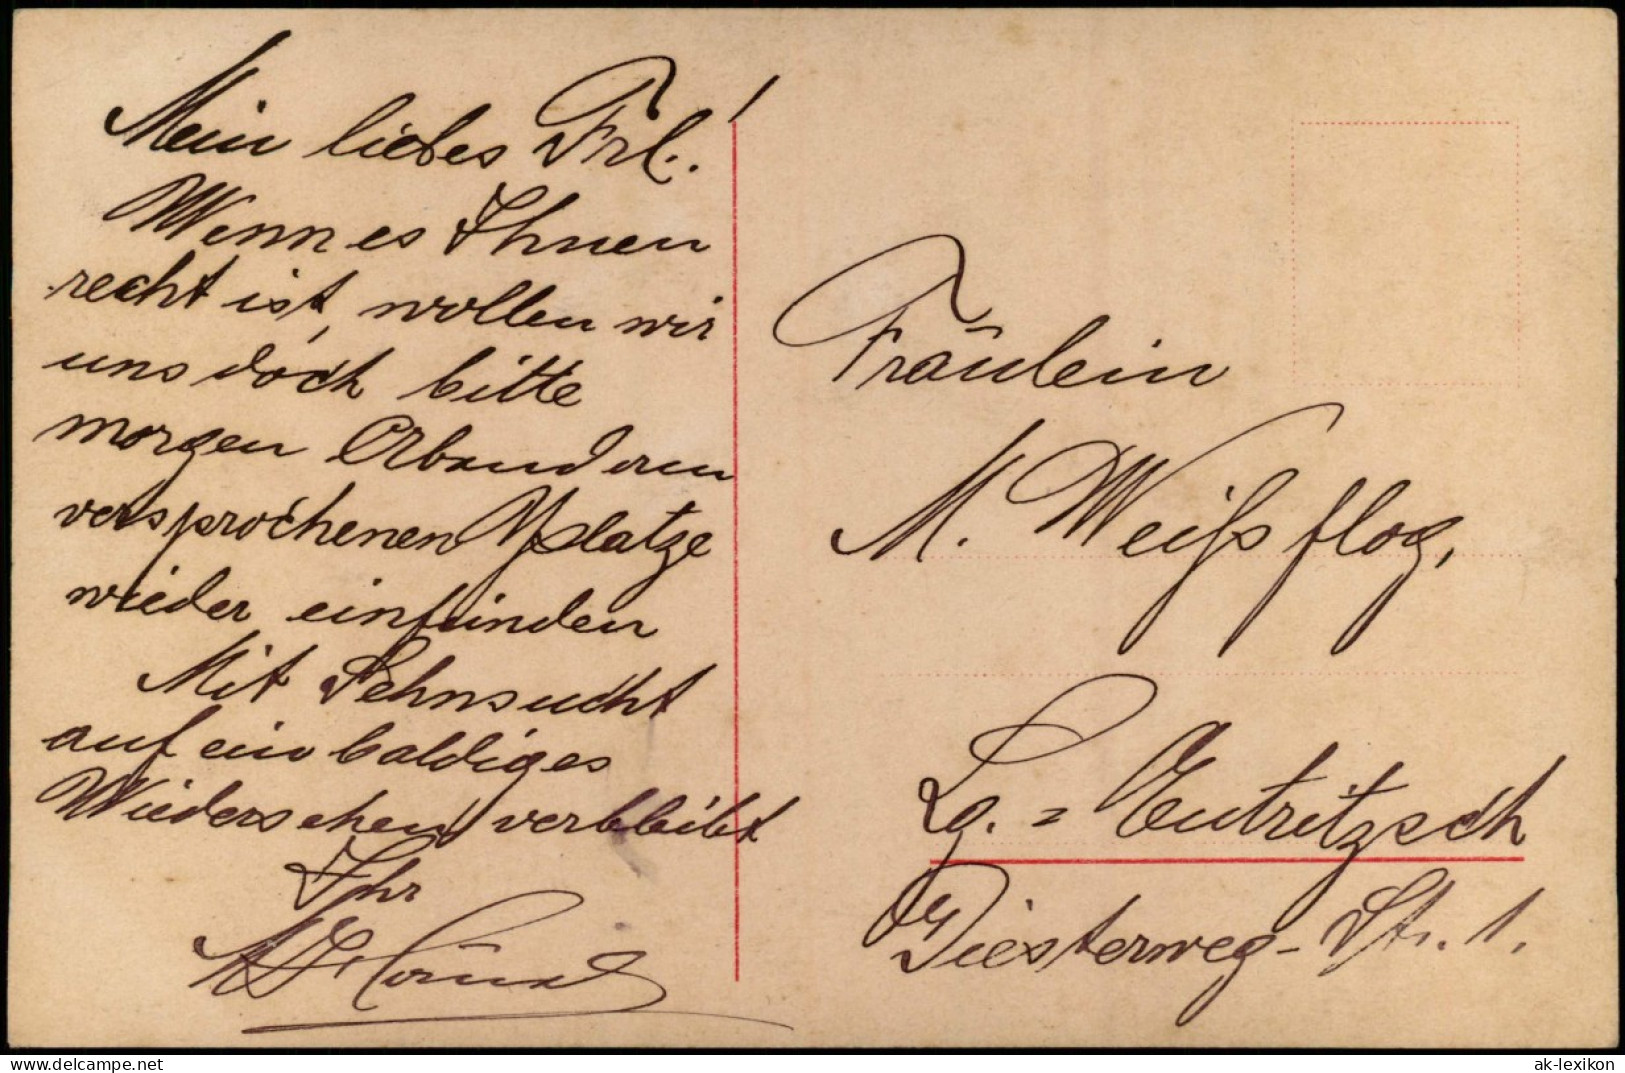 Mein liebes Frl.!
Wenn es Ihnen
recht ist, wollen wir
uns doch bitte
morgen Abend am
versprochenen Platze
wieder einfinden
Mit Sehnsucht
auf ein baldiges
Wiedersehen verbleibt
Ihr
Fräulein
M. Weißflog,
Lg. = Eutritzsch
Diesterweg-Str. 1.
delcampe.net
ak-lexikon